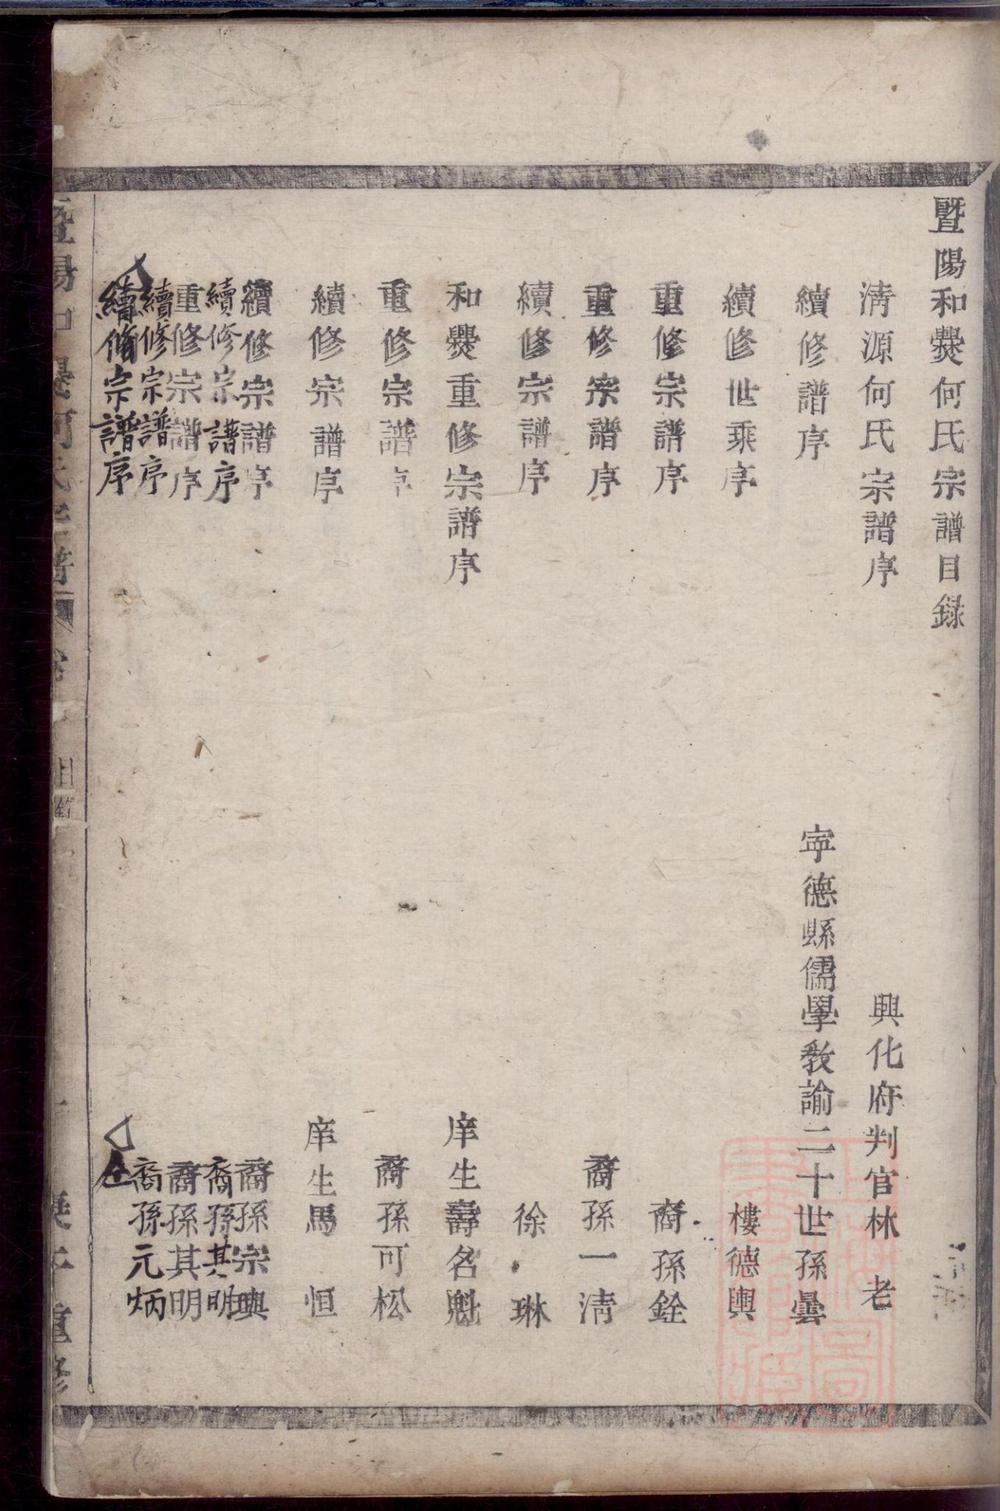 暨陽和爕何氏宗譜目録
淸源何氏宗譜序 興化府判官林 老
續修譜序 寕德縣儒學敎諭二十世孫曇
續修世乘序 樓德輿
重修宗譜序 裔孫銓
重修宗譜序 裔孫一淸
續修宗譜序 徐 琳
和爕重修宗譜序 庠生壽名魁
重修宗譜序 裔孫可松
續修宗譜序 庠生馬 恒
續修宗譜序 裔孫宗興
續修宗譜序 裔孫其明
重修宗譜序 裔孫其明
續修宗譜序 裔孫元炳
續脩宗譜序 仝